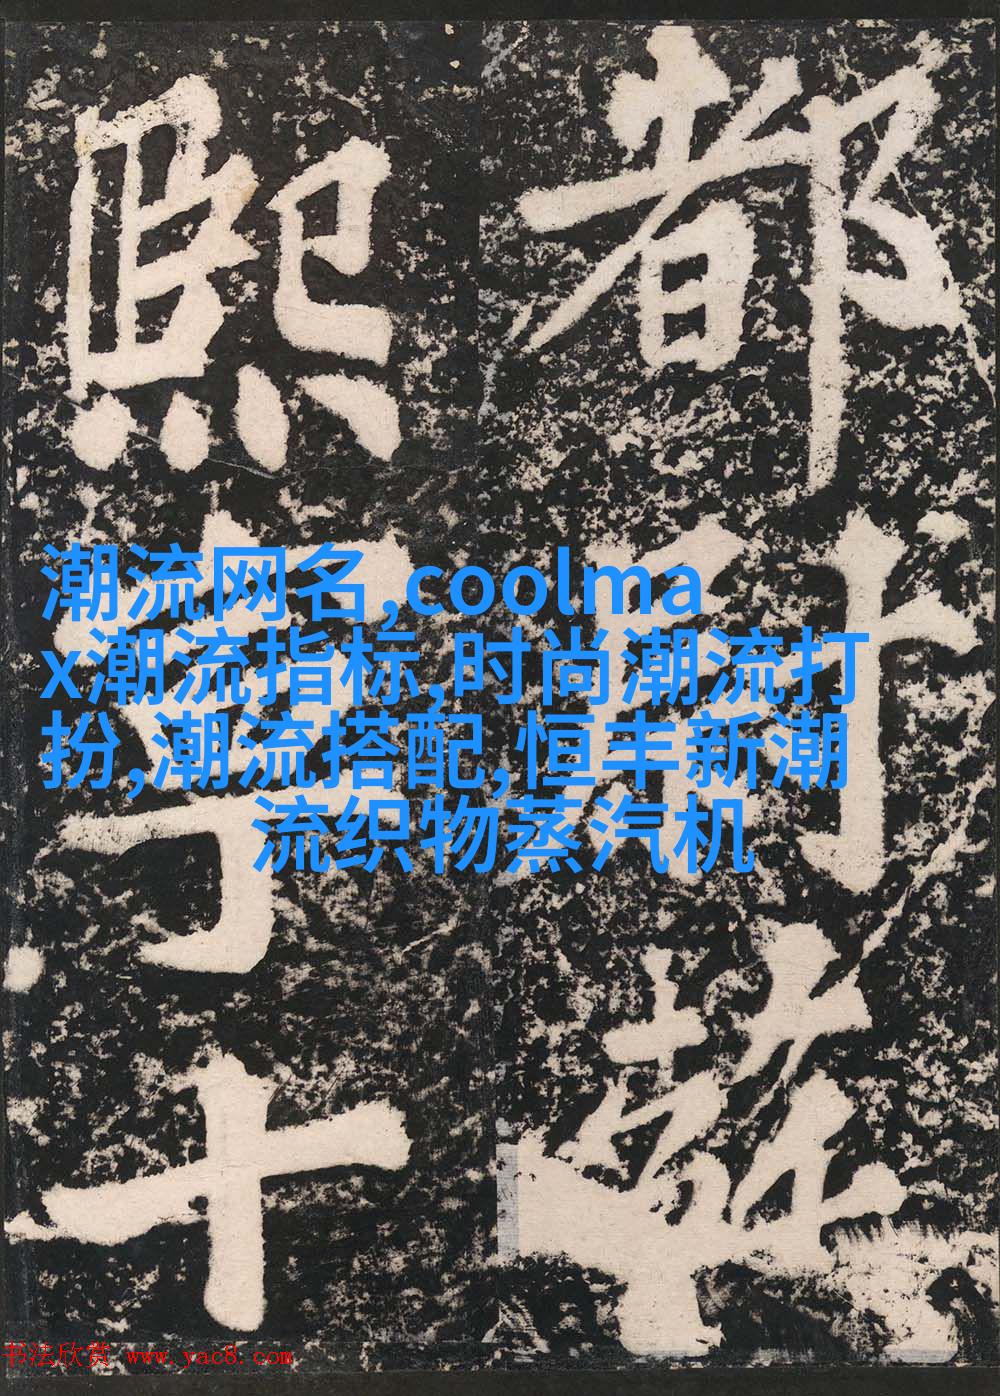 都尉
熙寧十
潮流网名,coolma
x潮流指标,时尚潮流打
扮,潮流搭配,恒丰新潮
流织物蒸汽机
书法欣赏 www.yac8.com